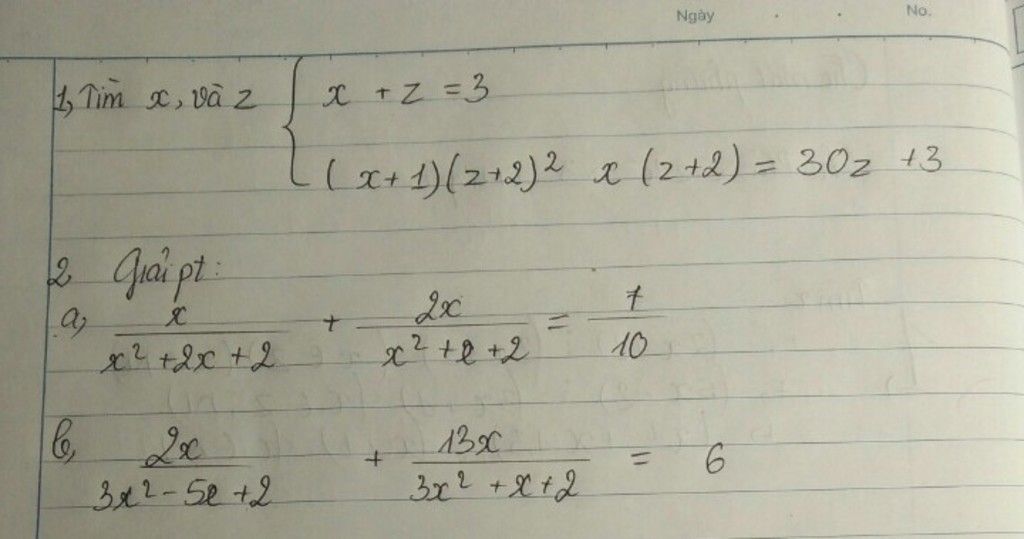 Ngày . . No.
1, Tìm x, và z { x + z = 3
(x+1)(z+2)² x (z+2) = 30z +3
2 Giải pt:
a, x/(x² +2x+2) + 2x/(x² +x+2) = 7/10
b, 2x/(3x² -5x+2) + 13x/(3x² +x+2) = 6